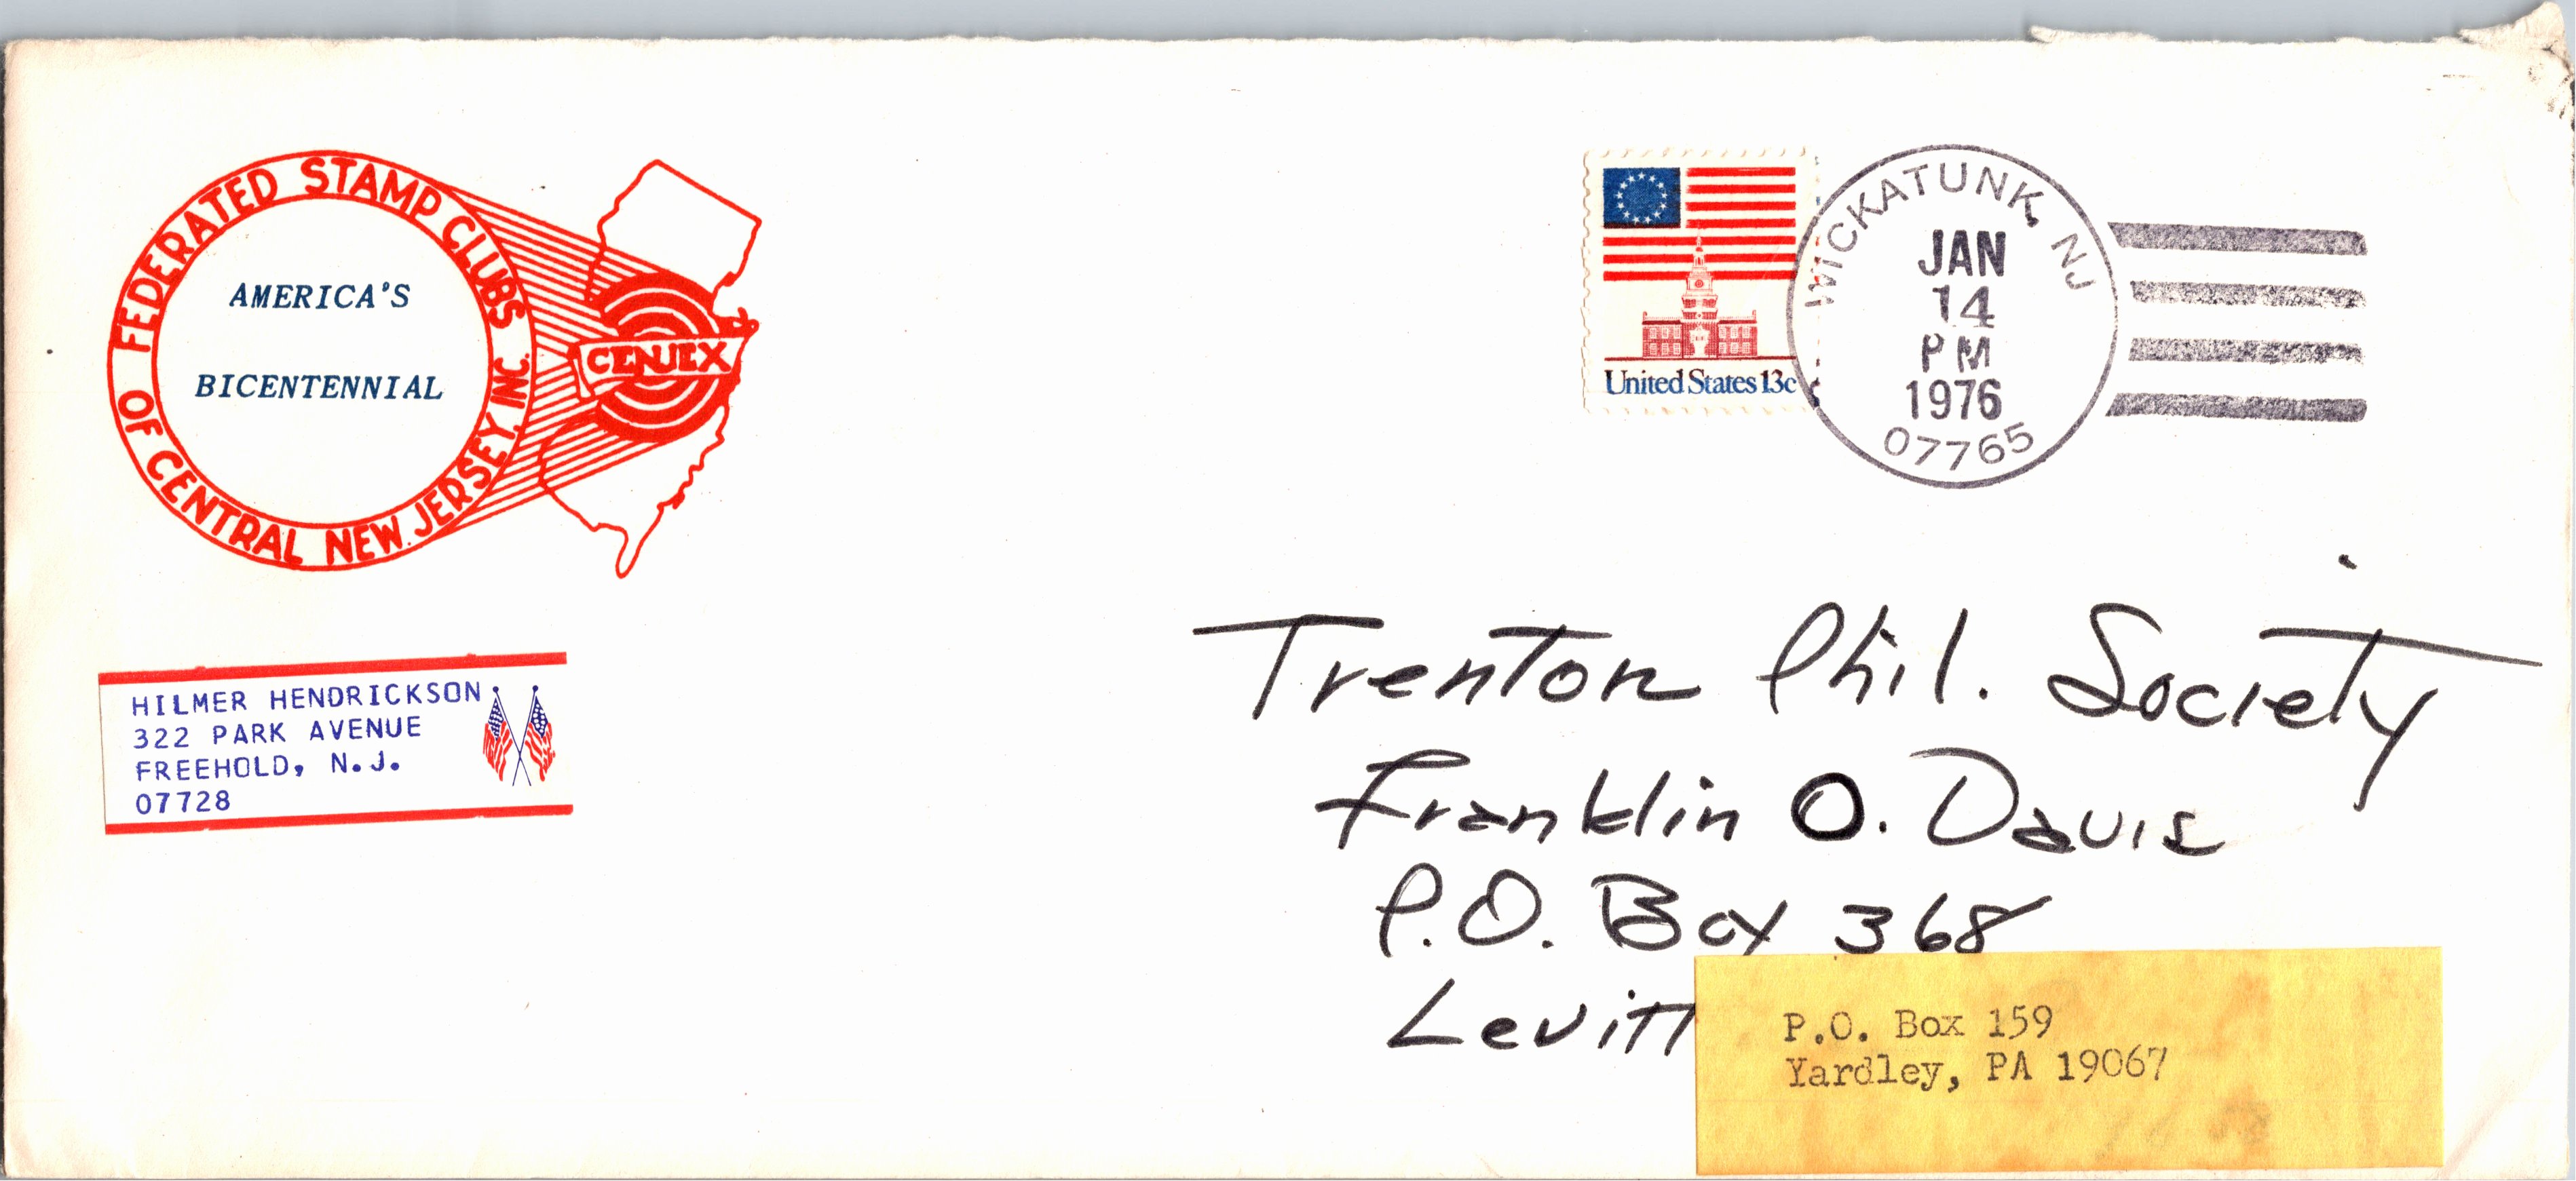 FEDERATED STAMP CLUBS
OF CENTRAL NEW JERSEY, INC.
AMERICA'S
BICENTENNIAL
CENJEX
United States 13c
WICKATUNK, NJ
JAN
14
PM
1976
07765
HILMER HENDRICKSON
322 PARK AVENUE
FREEHOLD, N.J.
07728
Trenton Phil. Society
Franklin O. Davis
P.O. Box 368
Levitt
P.O. Box 159
Yardley, PA 19067